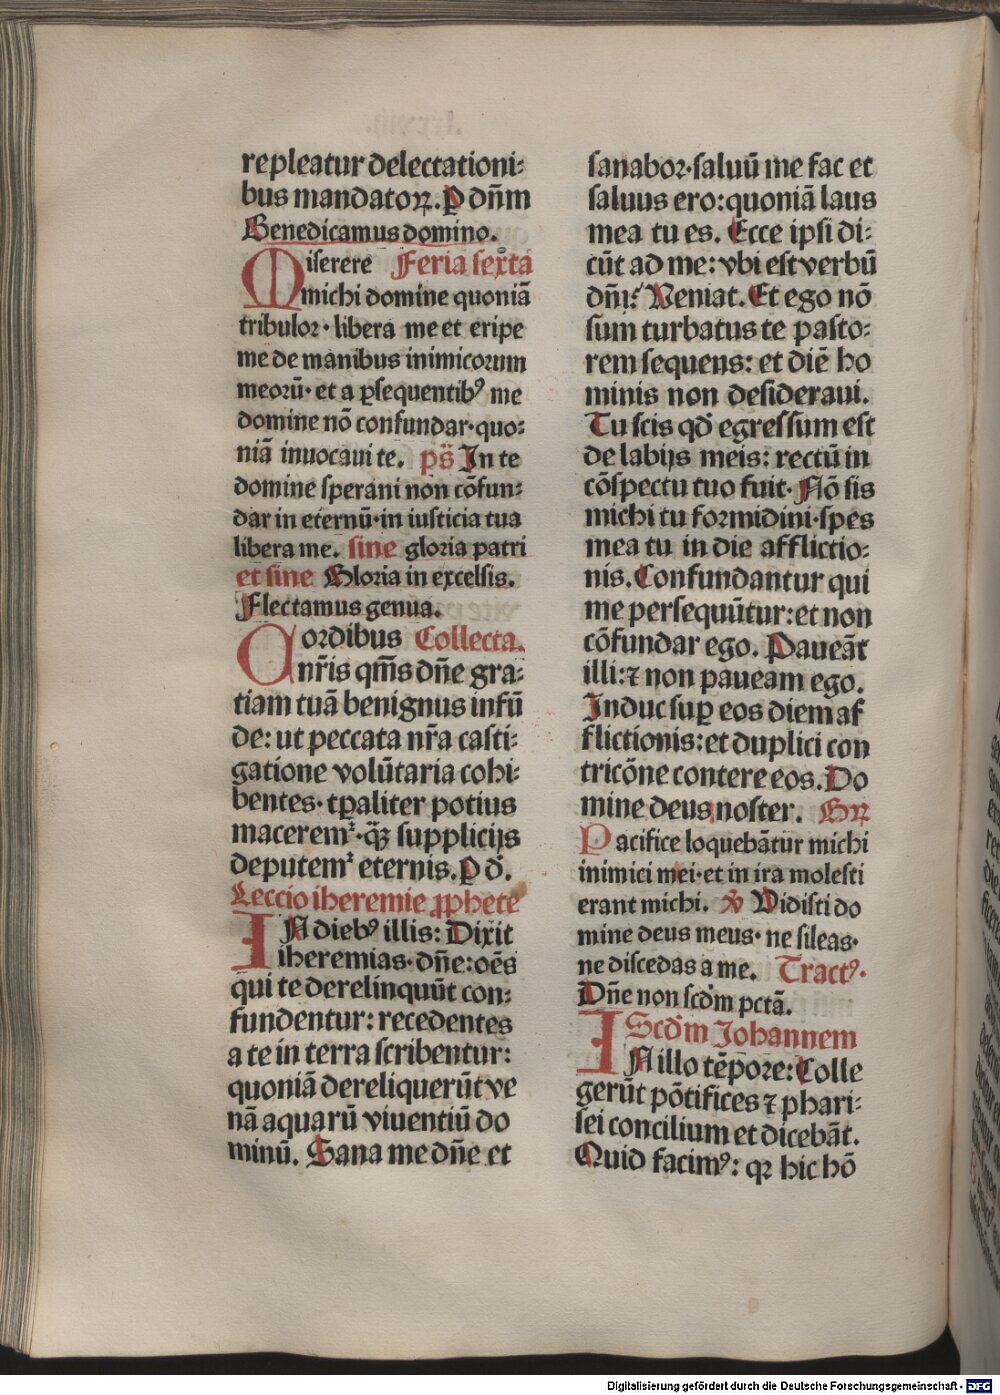 repleatur delectationi:
bus mandatoꝝ. ꝑ dn̄m
Benedicamus domino.
Miserere Feria sexta
michi domine quoniā
tribulor· libera me et eripe
me de manibus inimicorum
meorū· et a ꝑsequentibꝰ me
domine nō confundar· quo:
niā inuocaui te. p̄s In te
domine speraui non cōfun:
dar in eternū· in iusticia tua
libera me. sine gloria patri
et sine Gloria in excelsis.
Flectamus genua.
Cordibus Collecta.
nr̄is qm̄s dn̄e gra:
tiam tuā benignus infū
de: ut peccata nr̄a casti:
gatione volūtaria cohi:
bentes· tꝑaliter potius
maceremᷣ· qͣꝫ supplicijs
deputemᷣ eternis. ꝑ d̄.
Leccio iheremie ꝓphete
IN diebꝰ illis: Dixit
iheremias· dn̄e: oēs
qui te derelinquūt con:
fundentur: recedentes
a te in terra scribentur:
quoniā dereliquerūt ve
nā aquarū viuentiū do
minū. Sana me dn̄e et
sanabor· saluū me fac et
saluus ero: quoniā laus
mea tu es. Ecce ipsi di:
cūt ad me: vbi est verbū
dn̄i? Veniat. Et ego nō
sum turbatus te pasto:
rem sequens: et diē ho
minis non desideraui.
Tu scis qd̄ egressum est
de labijs meis: rectū in
cōspectu tuo fuit· Nō sis
michi tu formidini· spes
mea tu in die afflictio:
nis. Confundantur qui
me persequūtur: et non
cōfundar ego. Paueāt
illi: ⁊ non paueam ego.
Induc suꝑ eos diem af
flictionis: et duplici con
tricōne contere eos. Do
mine deus noster. Gꝝ
Pacifice loquebātur michi
inimici mei· et in ira molesti
erant michi. ℣ Vidisti do
mine deus meus· ne sileas·
ne discedas a me. Tractꝰ·
Dn̄e non scd̄m pctā.
Scd̄m Johannem
IN illo tēpore: Colle
gerūt pōtifices ⁊ phari:
sei concilium et dicebāt.
Quid facimꝰ: qꝛ hic hō
Digitalisierung gefördert durch die Deutsche Forschungsgemeinschaft - DFG